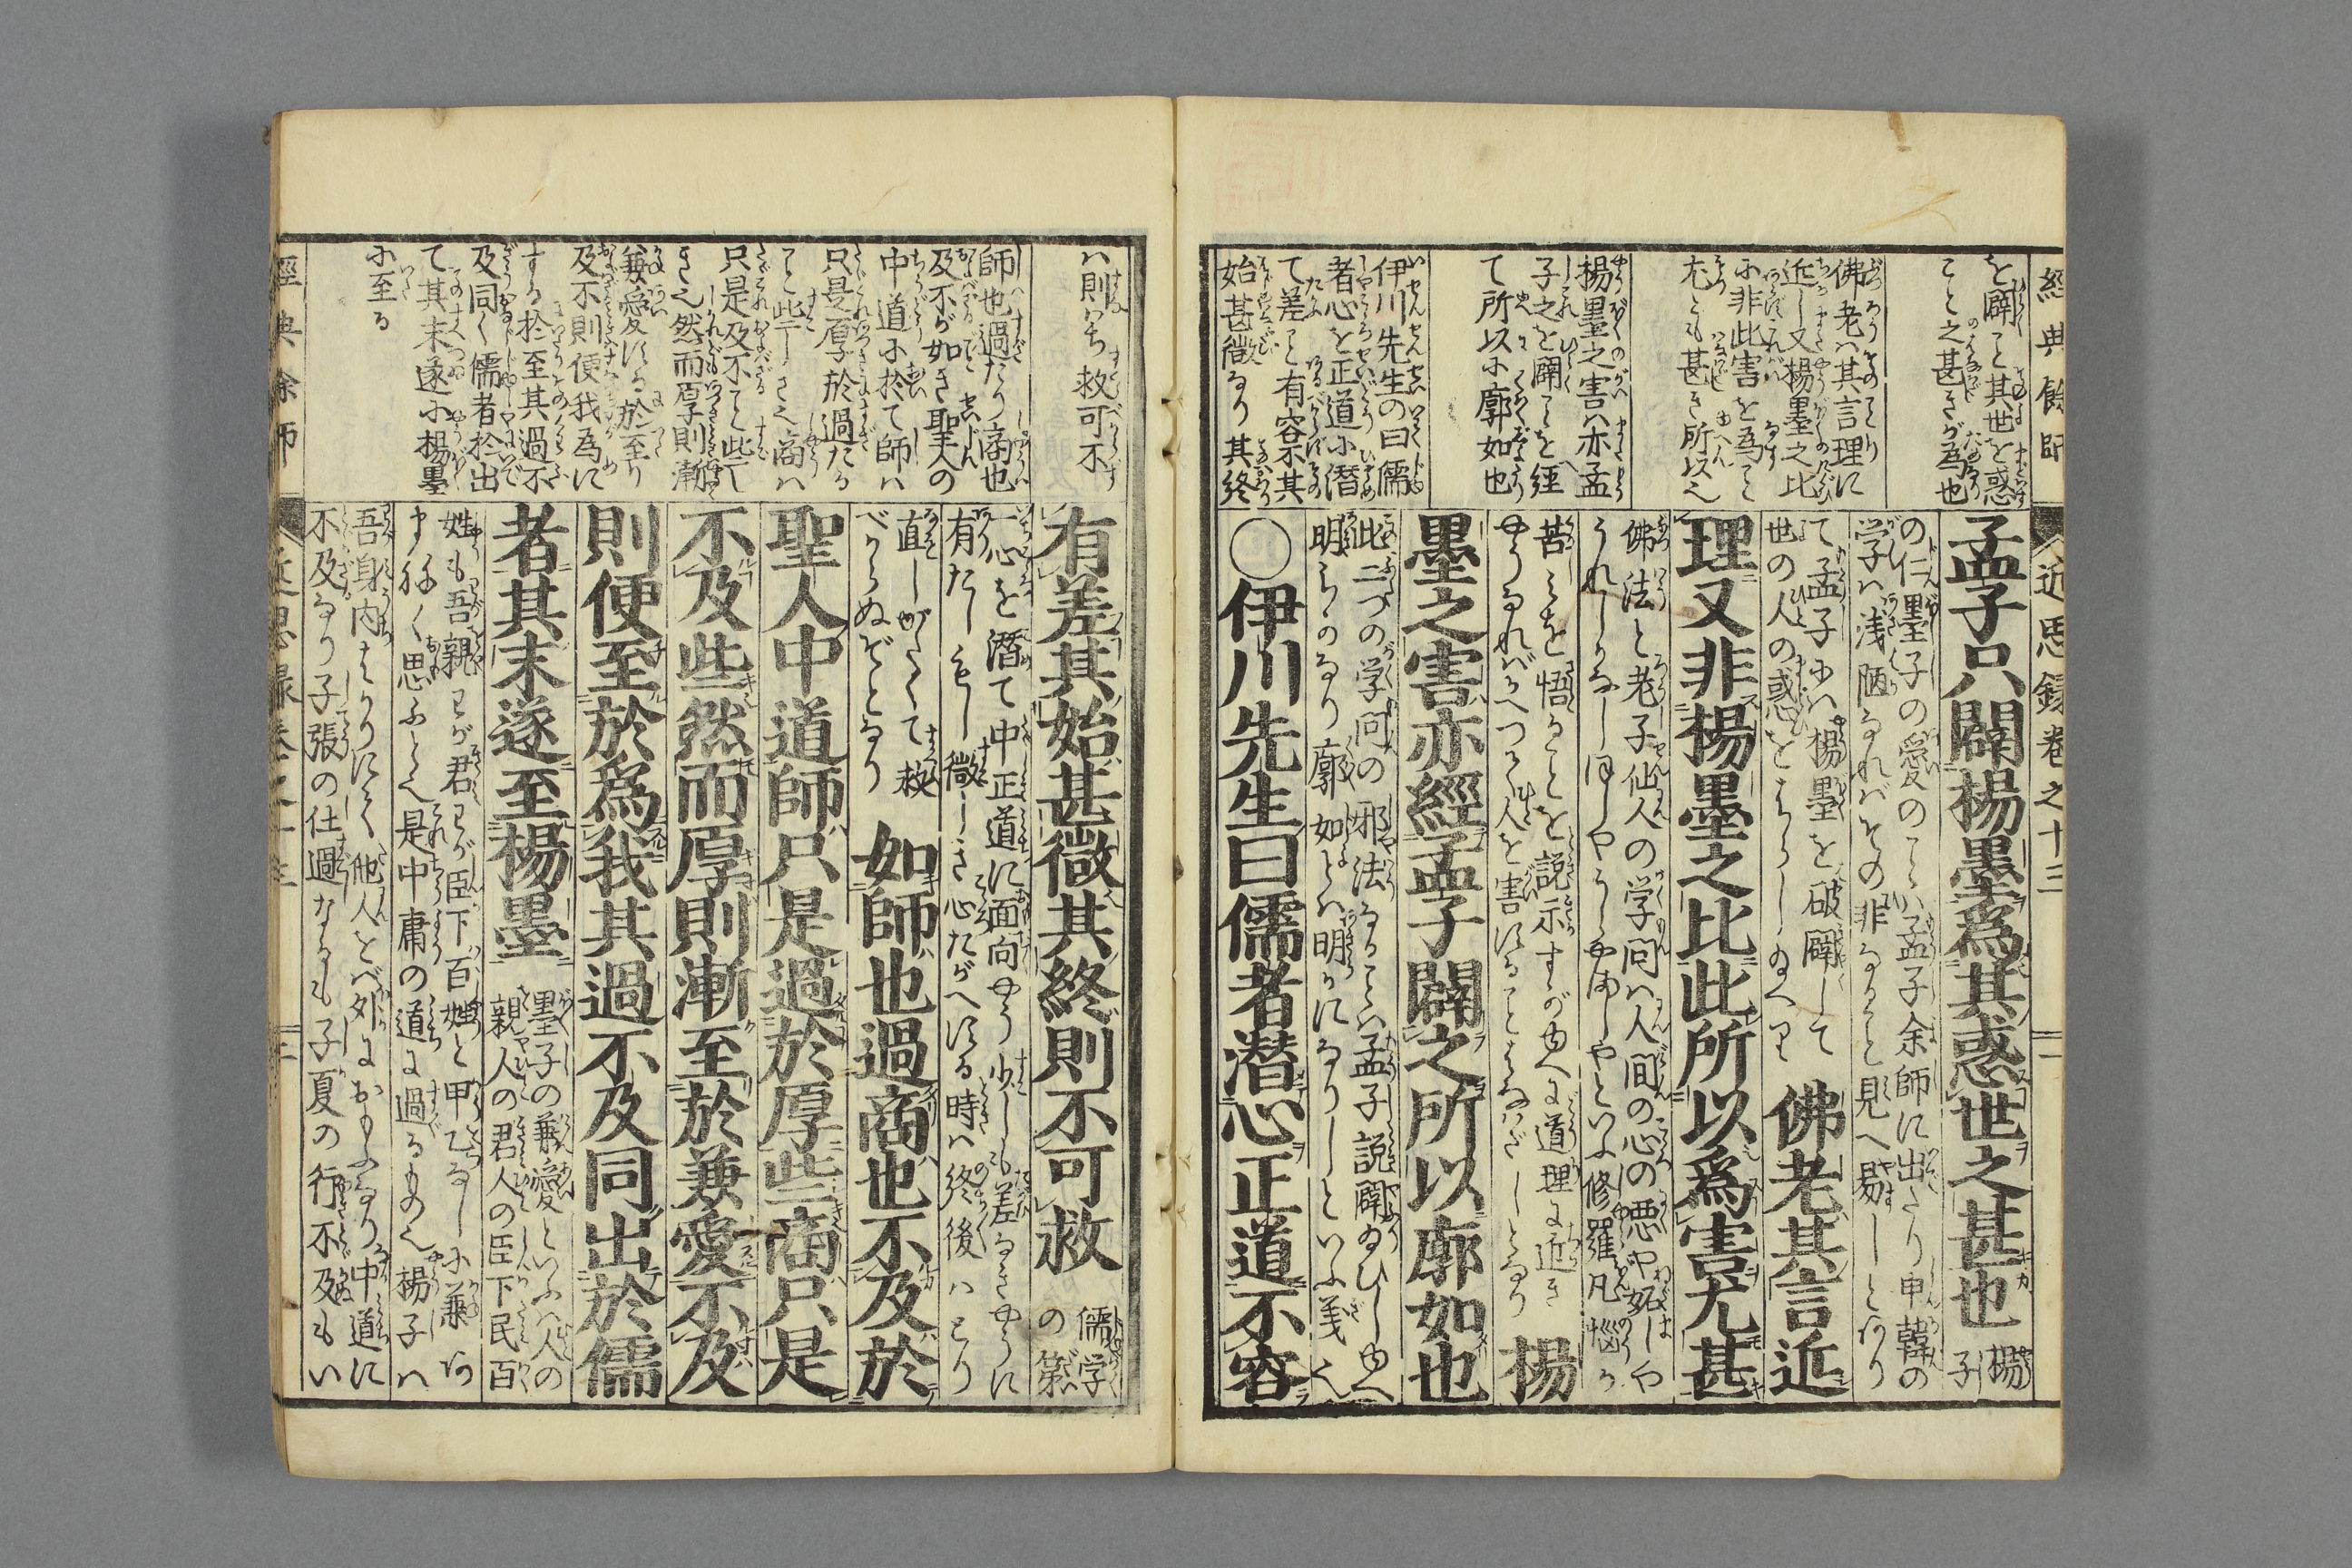 經典餘師
近思録卷之十三
一
を闢こと其世を惑
こと之甚きが為也
佛老は其言理に
近し又楊墨之比
に非此害を為こと
尤とも甚き所以之
楊墨之害は亦孟
子之を闢ことを經
て所以に廓如也
伊川先生の曰儒
者心を正道に潜
て差こと有容不其
始甚微なり其終
孟子只闢楊墨爲其惑世之甚也
楊子
の仁墨子の愛のことは孟子余師に出たり申韓の
学は浅陋なればその非なること見へ易しとなり
て孟子には楊墨を破闢して
世の人の惑をはらしゐへり
佛老其言近
理又非楊墨之比此所以爲害尤甚
佛法と老子仙人の学問は人間の心の悪や妬しや
うれしかなしほしやうらやましやといふ修羅凡悩の
苦しみを悟ることを説示すがゆへに道理に近き
やうなればかへつて人を害することはなはだしとなり
楊
墨之害亦經孟子闢之所以廓如也
此二つの学問の邪法なることは孟子説闢ゐひしゆへ
明らかなり廓如とは明かになりしといふ義也
○伊川先生曰儒者潜心正道不容
は則はち救可不
師也過たり商也
及不が如き聖人の
中道に於て師は
只是厚於過たる
こと些しき之商は
只是及不こと些し
き之然而厚則漸
兼愛する於至り
及不則便我為に
する於至其過不
及同く儒者於出
て其末遂に楊墨
に至る
有差其始甚微其終則不可救
儒学
の第
一心を潜て中正道に面向やう少しも差なきやうに
有たしもし微しき心たがへする時は終後はとり
直しがたくて救
べからぬぞとなり
如師也過商也不及於
聖人中道師只是過於厚些商只是
不及些然而厚則漸至於兼愛不及
則便至於爲我其過不及同出於儒
者其末遂至楊墨
墨子の兼愛といふは人の
親人の君人の臣下民百
姓も吾親わが君わが臣下百姓と甲乙なしに兼
まねく思ふとて是中庸の道に過るもの也楊子は
吾身内ばかりにて他人をべ外におもふなり中道に
不及なり子張の仕過なるも子夏の行不及もい
經典余師
近思録卷之十三
二